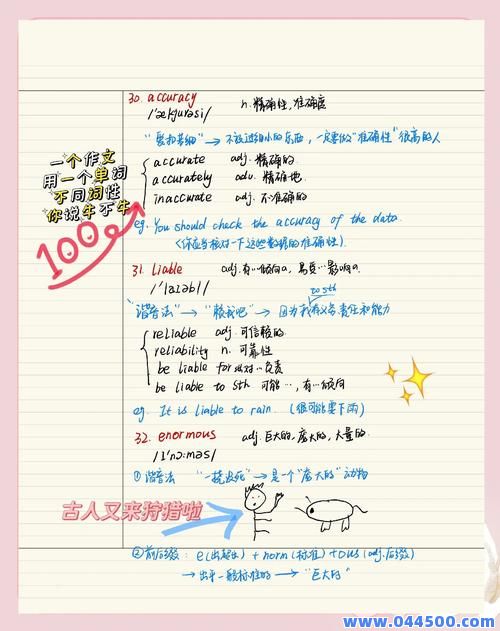 30. accuracy n. 精确性, 准确度
/'ækjʊrəsi/
→ 不放过细小的东西, 一定要做"准确性"很高的人
accurate adj. 精确的
accurately adv. 精确地
inaccurate adj. 不准确的
eg. You should check the accuracy of the data.
(你应当核对一下这些数据的准确性).
一个作文
用一个单词
不同词性
你说牛不牛
100
31. liable adj. 有…倾向的, 易受…影响的.
/'laɪəbl/
to sth
"谐音法" → "赖我吧" → 因为我有义务责任和能力
reliable adj. 可信赖的.
reliability n. 可靠性
be liable for 对…负责
be liable to sth 可能…, 有…倾向
eg. It is liable to rain. (很可能要下雨)
32. enormous adj. 巨大的, 庞大的, 大量的.
/ɪ'nɔ:məs/
① 谐音法 → 是一个"庞大的"动物
古人又来狩猎啦
② 前后缀: e(出, 超出) + norm(标准) + ous(adj.后缀)
→ 出乎一般标准的 → "巨大的"
www.044500.com